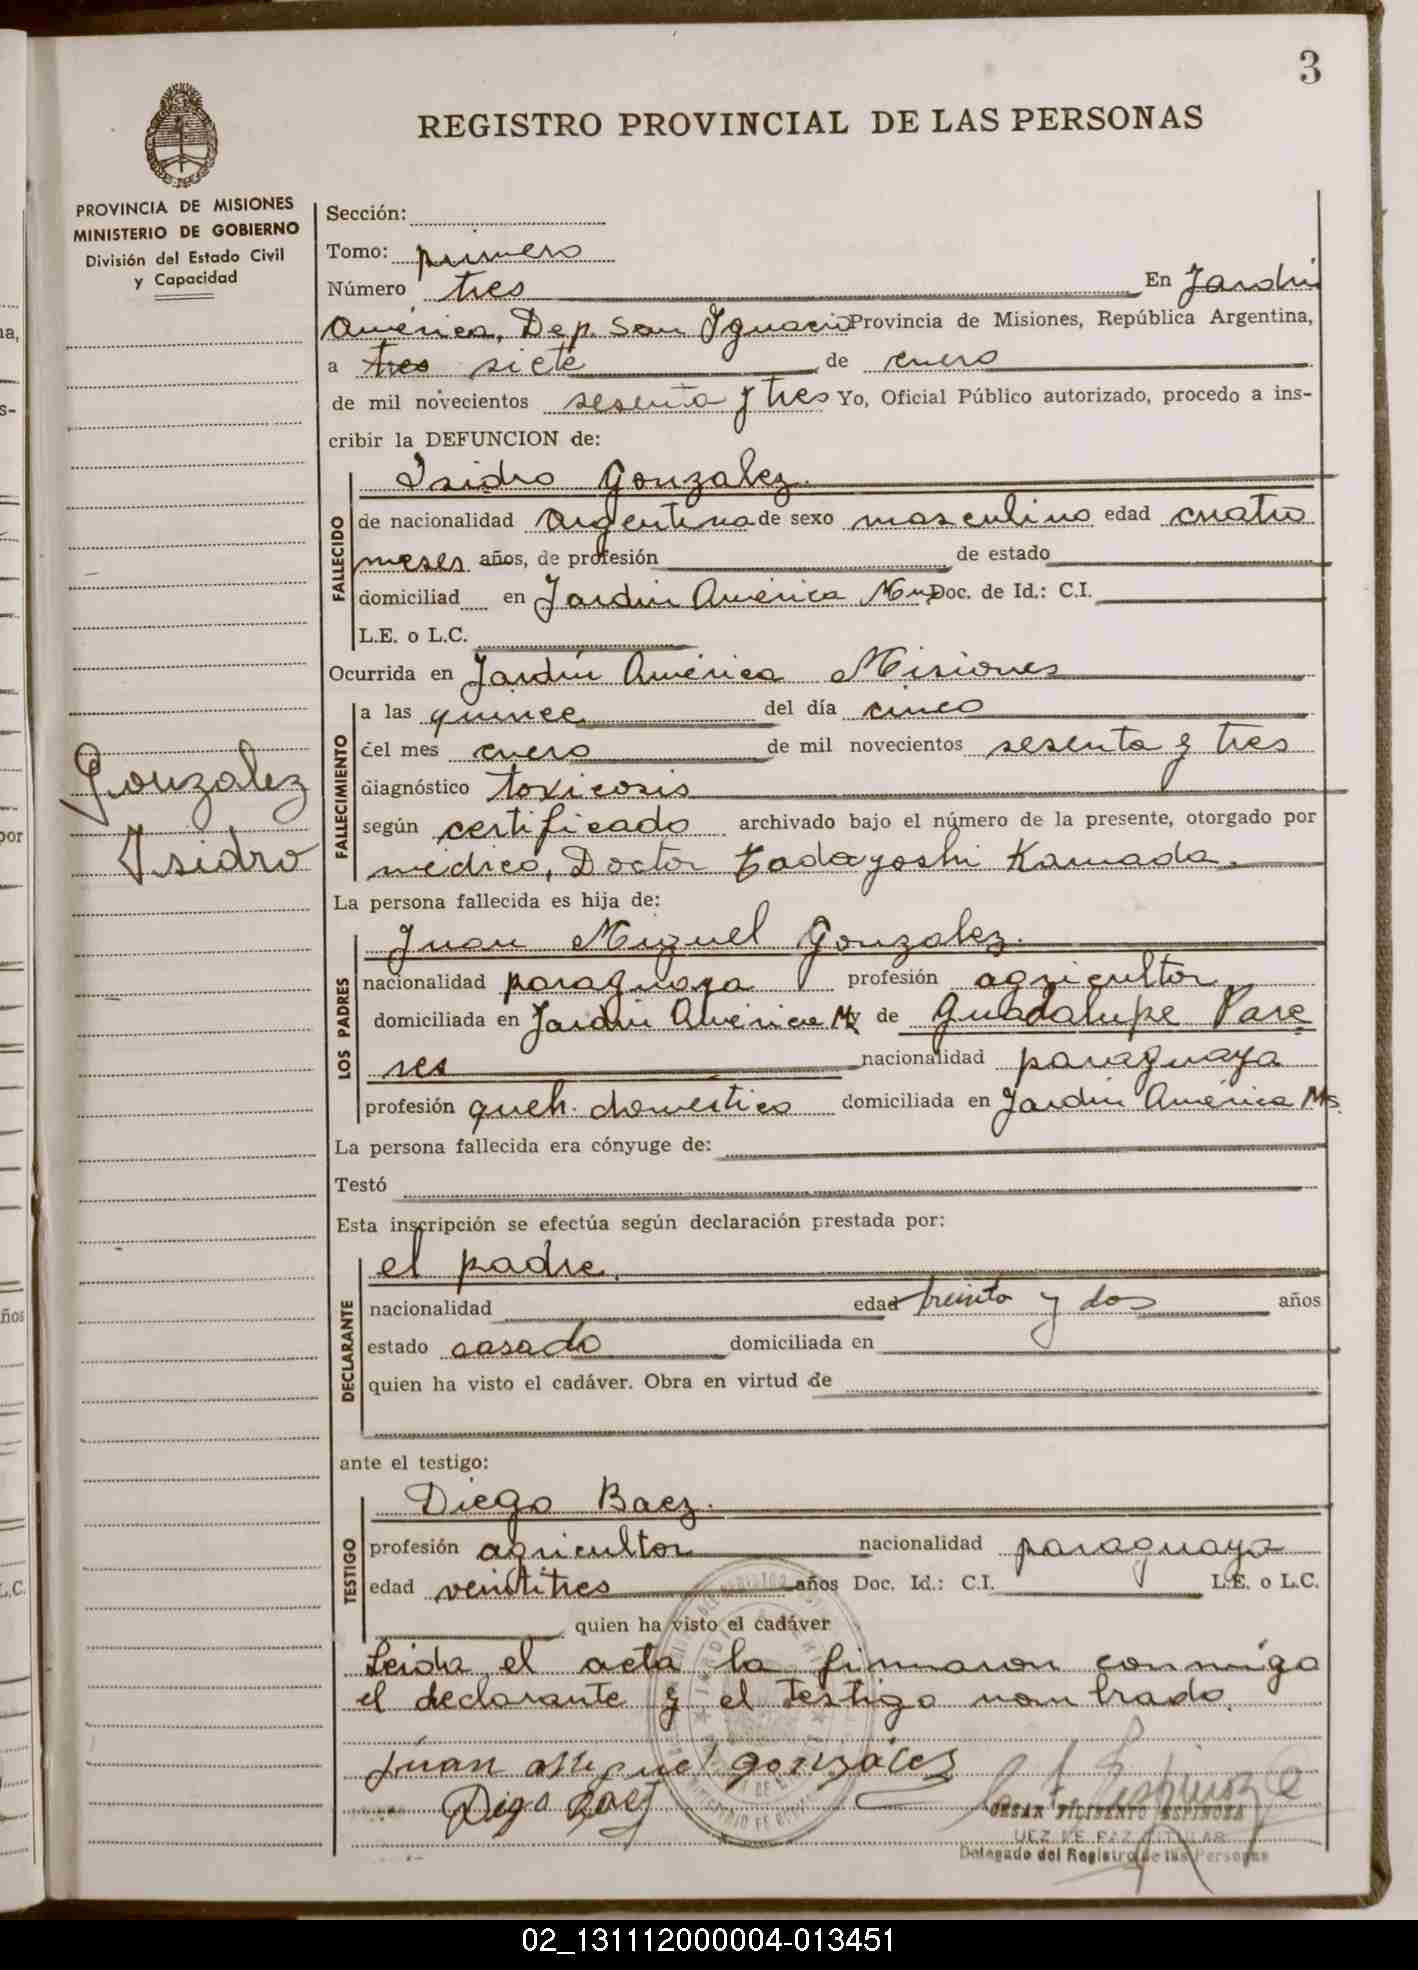 3
REGISTRO PROVINCIAL DE LAS PERSONAS
PROVINCIA DE MISIONES
MINISTERIO DE GOBIERNO
División del Estado Civil
y Capacidad
Gonzalez
Isidro
Sección:
Tomo: primero
Número tres En Jardín
América, Dep. San Ignacio Provincia de Misiones, República Argentina,
a tres siete de enero
de mil novecientos sesenta y tres Yo, Oficial Público autorizado, procedo a ins-
cribir la DEFUNCION de:
FALLECIDO
Isidro Gonzalez.
de nacionalidad argentina de sexo masculino edad cuatro
meses años, de profesión de estado
domiciliad en Jardín América Mns Doc. de Id.: C.I.
L.E. o L.C.
Ocurrida en Jardín América Misiones
FALLECIMIENTO
a las quince del día cinco
del mes enero de mil novecientos sesenta y tres
diagnóstico toxicosis
según certificado archivado bajo el número de la presente, otorgado por
medico, Doctor Tadayoshi Kamada.
La persona fallecida es hija de:
LOS PADRES
Juan Miguel Gonzalez.
nacionalidad paraguaya profesión agricultor
domiciliada en Jardín América Ms y de Guadalupe Pare
res nacionalidad paraguaya
profesión queh. domestico domiciliada en Jardín América Ms.
La persona fallecida era cónyuge de:
Testó
Esta inscripción se efectúa según declaración prestada por:
DECLARANTE
el padre.
nacionalidad edad treinta y dos años
estado casado domiciliada en
quien ha visto el cadáver. Obra en virtud de
ante el testigo:
TESTIGO
Diego Baez.
profesión agricultor nacionalidad paraguaya
edad veintitres años Doc. Id.: C.I. L.E. o L.C.
quien ha visto el cadáver
Leida el acta la firmaron conmigo
el declarante y el testigo nombrado.
Juan Miguel gonzales
Diego Baez
C. F. Espinoza
CESAR FILIBERTO ESPINOSA
JUEZ DE PAZ TITULAR
Delegado del Registro de las Personas
02_131112000004-013451